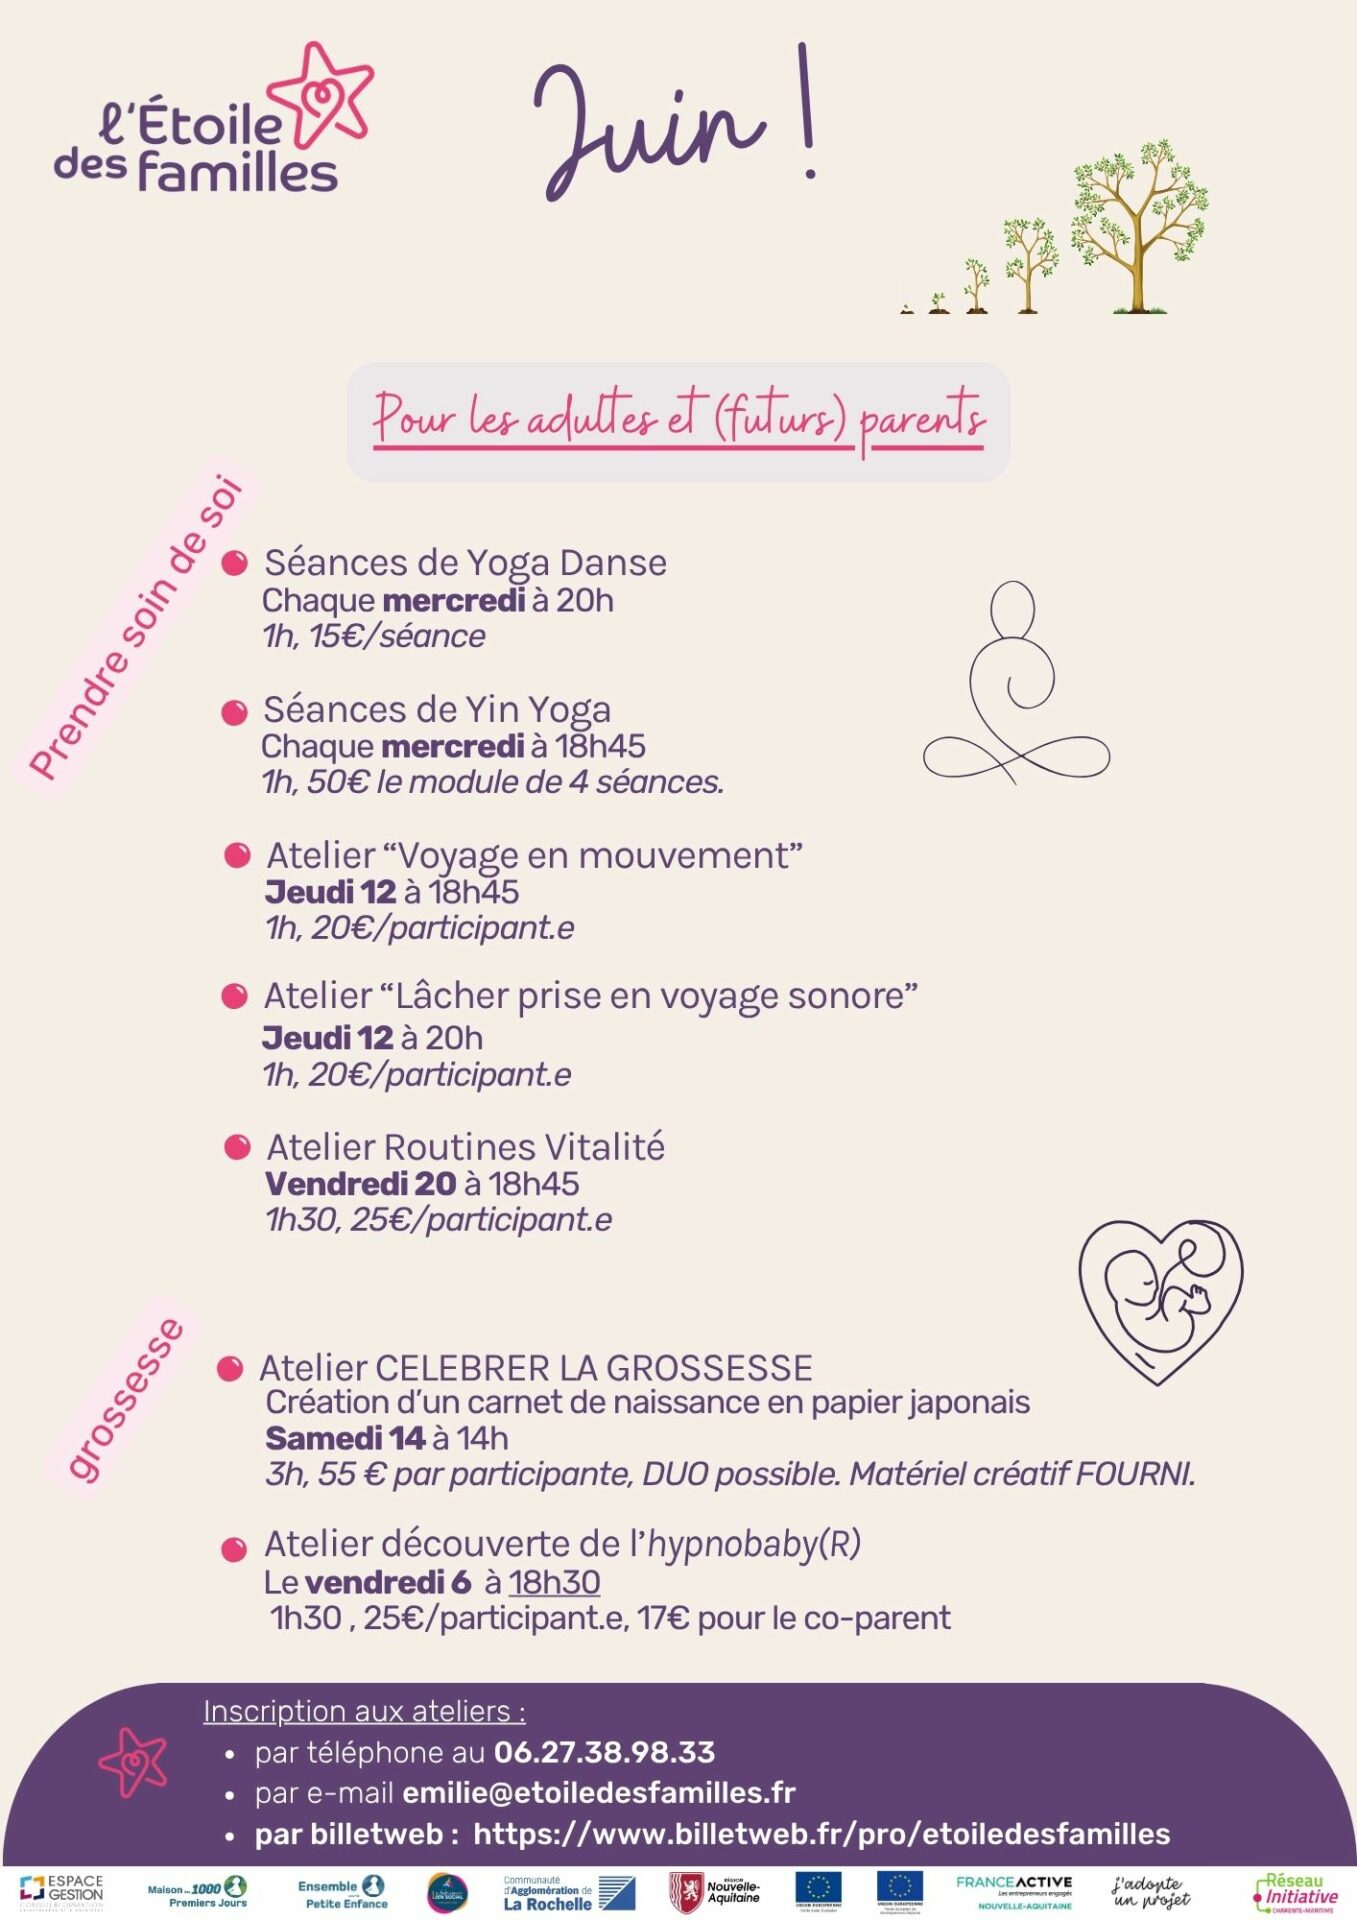 l'Étoile
des familles
Juin !
Pour les adultes et (futurs) parents
Prendre soin de soi
Séances de Yoga Danse
Chaque mercredi à 20h
1h, 15€/séance
Séances de Yin Yoga
Chaque mercredi à 18h45
1h, 50€ le module de 4 séances.
Atelier “Voyage en mouvement”
Jeudi 12 à 18h45
1h, 20€/participant.e
Atelier “Lâcher prise en voyage sonore”
Jeudi 12 à 20h
1h, 20€/participant.e
Atelier Routines Vitalité
Vendredi 20 à 18h45
1h30, 25€/participant.e
grossesse
Atelier CELEBRER LA GROSSESSE
Création d’un carnet de naissance en papier japonais
Samedi 14 à 14h
3h, 55 € par participante, DUO possible. Matériel créatif FOURNI.
Atelier découverte de l’hypnobaby(R)
Le vendredi 6 à 18h30
1h30 , 25€/participant.e, 17€ pour le co-parent
Inscription aux ateliers :
• par téléphone au 06.27.38.98.33
• par e-mail emilie@etoiledesfamilles.fr
• par billetweb : https://www.billetweb.fr/pro/etoiledesfamilles
ESPACE
GESTION
Maison 1000
Premiers Jours
Ensemble
Petite Enfance
LIEN SOCIAL
Communauté
d'Agglomération de
La Rochelle
RÉGION
Nouvelle-
Aquitaine
UNION EUROPÉENNE
UNION EUROPÉENNE
FRANCE ACTIVE
Les entrepreneurs engagés
NOUVELLE-AQUITAINE
j'adopte
un projet
Réseau
Initiative
CHARENTE-MARITIME